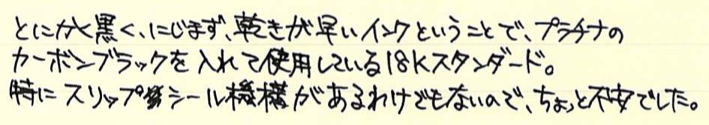 とにかく黒く、にじまず、乾きが早いインクということで、プラチナの
カーボンブラックを入れて使用している18Kスタンダード。
特にスリップシール機構があるわけでもないので、ちょっと不安でした。